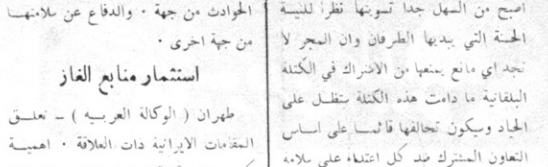 اصبح من السهل جدا تسويتها نظرا للنية
الحسنة التي يبديها الطرفان وان المجر لا
تجد اي مانع يمنعها من الاشتراك في الكتلة
البلقانية ما دامت هذه الكتلة ستظل على
الحياد وسيكون تحالفها قائما على اساس
التعاون المشترك ضد كل اعتداء على سلامة
الحوادث من جهة ٠ والدفاع عن سلامتها
من جهة اخرى ٠
استثمار منابع الغاز
طهران ( الوكالة العربيه ) ــ تعلق
المقامات الايرانية ذات العلاقة ٠ اهمية